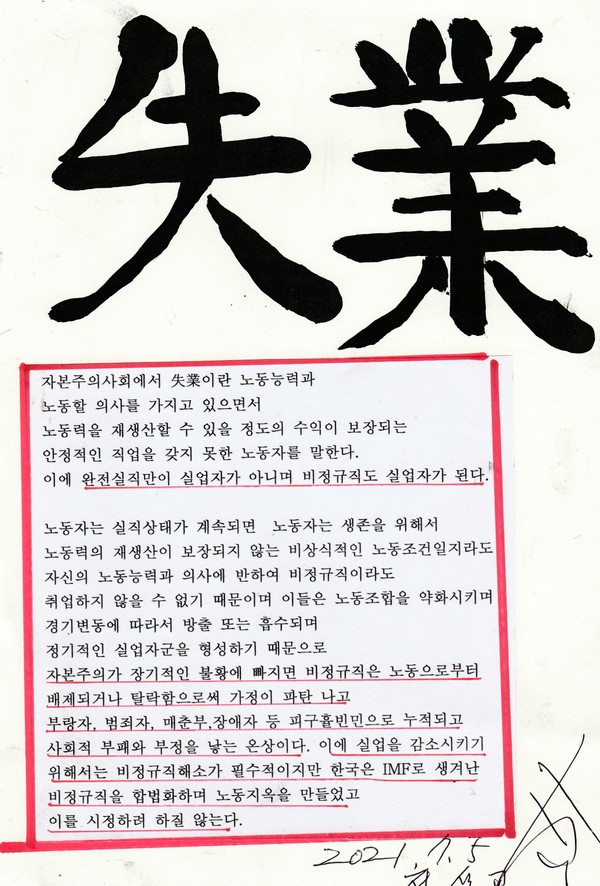 失業
자본주의사회에서 失業이란 노동능력과
노동할 의사를 가지고 있으면서
노동력을 재생산할 수 있을 정도의 수익이 보장되는
안정적인 직업을 갖지 못한 노동자를 말한다.
이에 완전실직만이 실업자가 아니며 비정규직도 실업자가 된다.
노동자는 실직상태가 계속되면 노동자는 생존을 위해서
노동력의 재생산이 보장되지 않는 비상식적인 노동조건일지라도
자신의 노동능력과 의사에 반하여 비정규직이라도
취업하지 않을 수 없기 때문이며 이들은 노동조합을 약화시키며
경기변동에 따라서 방출 또는 흡수되며
정기적인 실업자군을 형성하기 때문으로
자본주의가 장기적인 불황에 빠지면 비정규직은 노동으로부터
배제되거나 탈락함으로써 가정이 파탄 나고
부랑자, 범죄자, 매춘부,장애자 등 피구휼빈민으로 누적되고
사회적 부패와 부정을 낳는 온상이다. 이에 실업을 감소시키기
위해서는 비정규직해소가 필수적이지만 한국은 IMF로 생겨난
비정규직을 합법화하며 노동지옥을 만들었고
이를 시정하려 하질 않는다.
2021. 7. 5